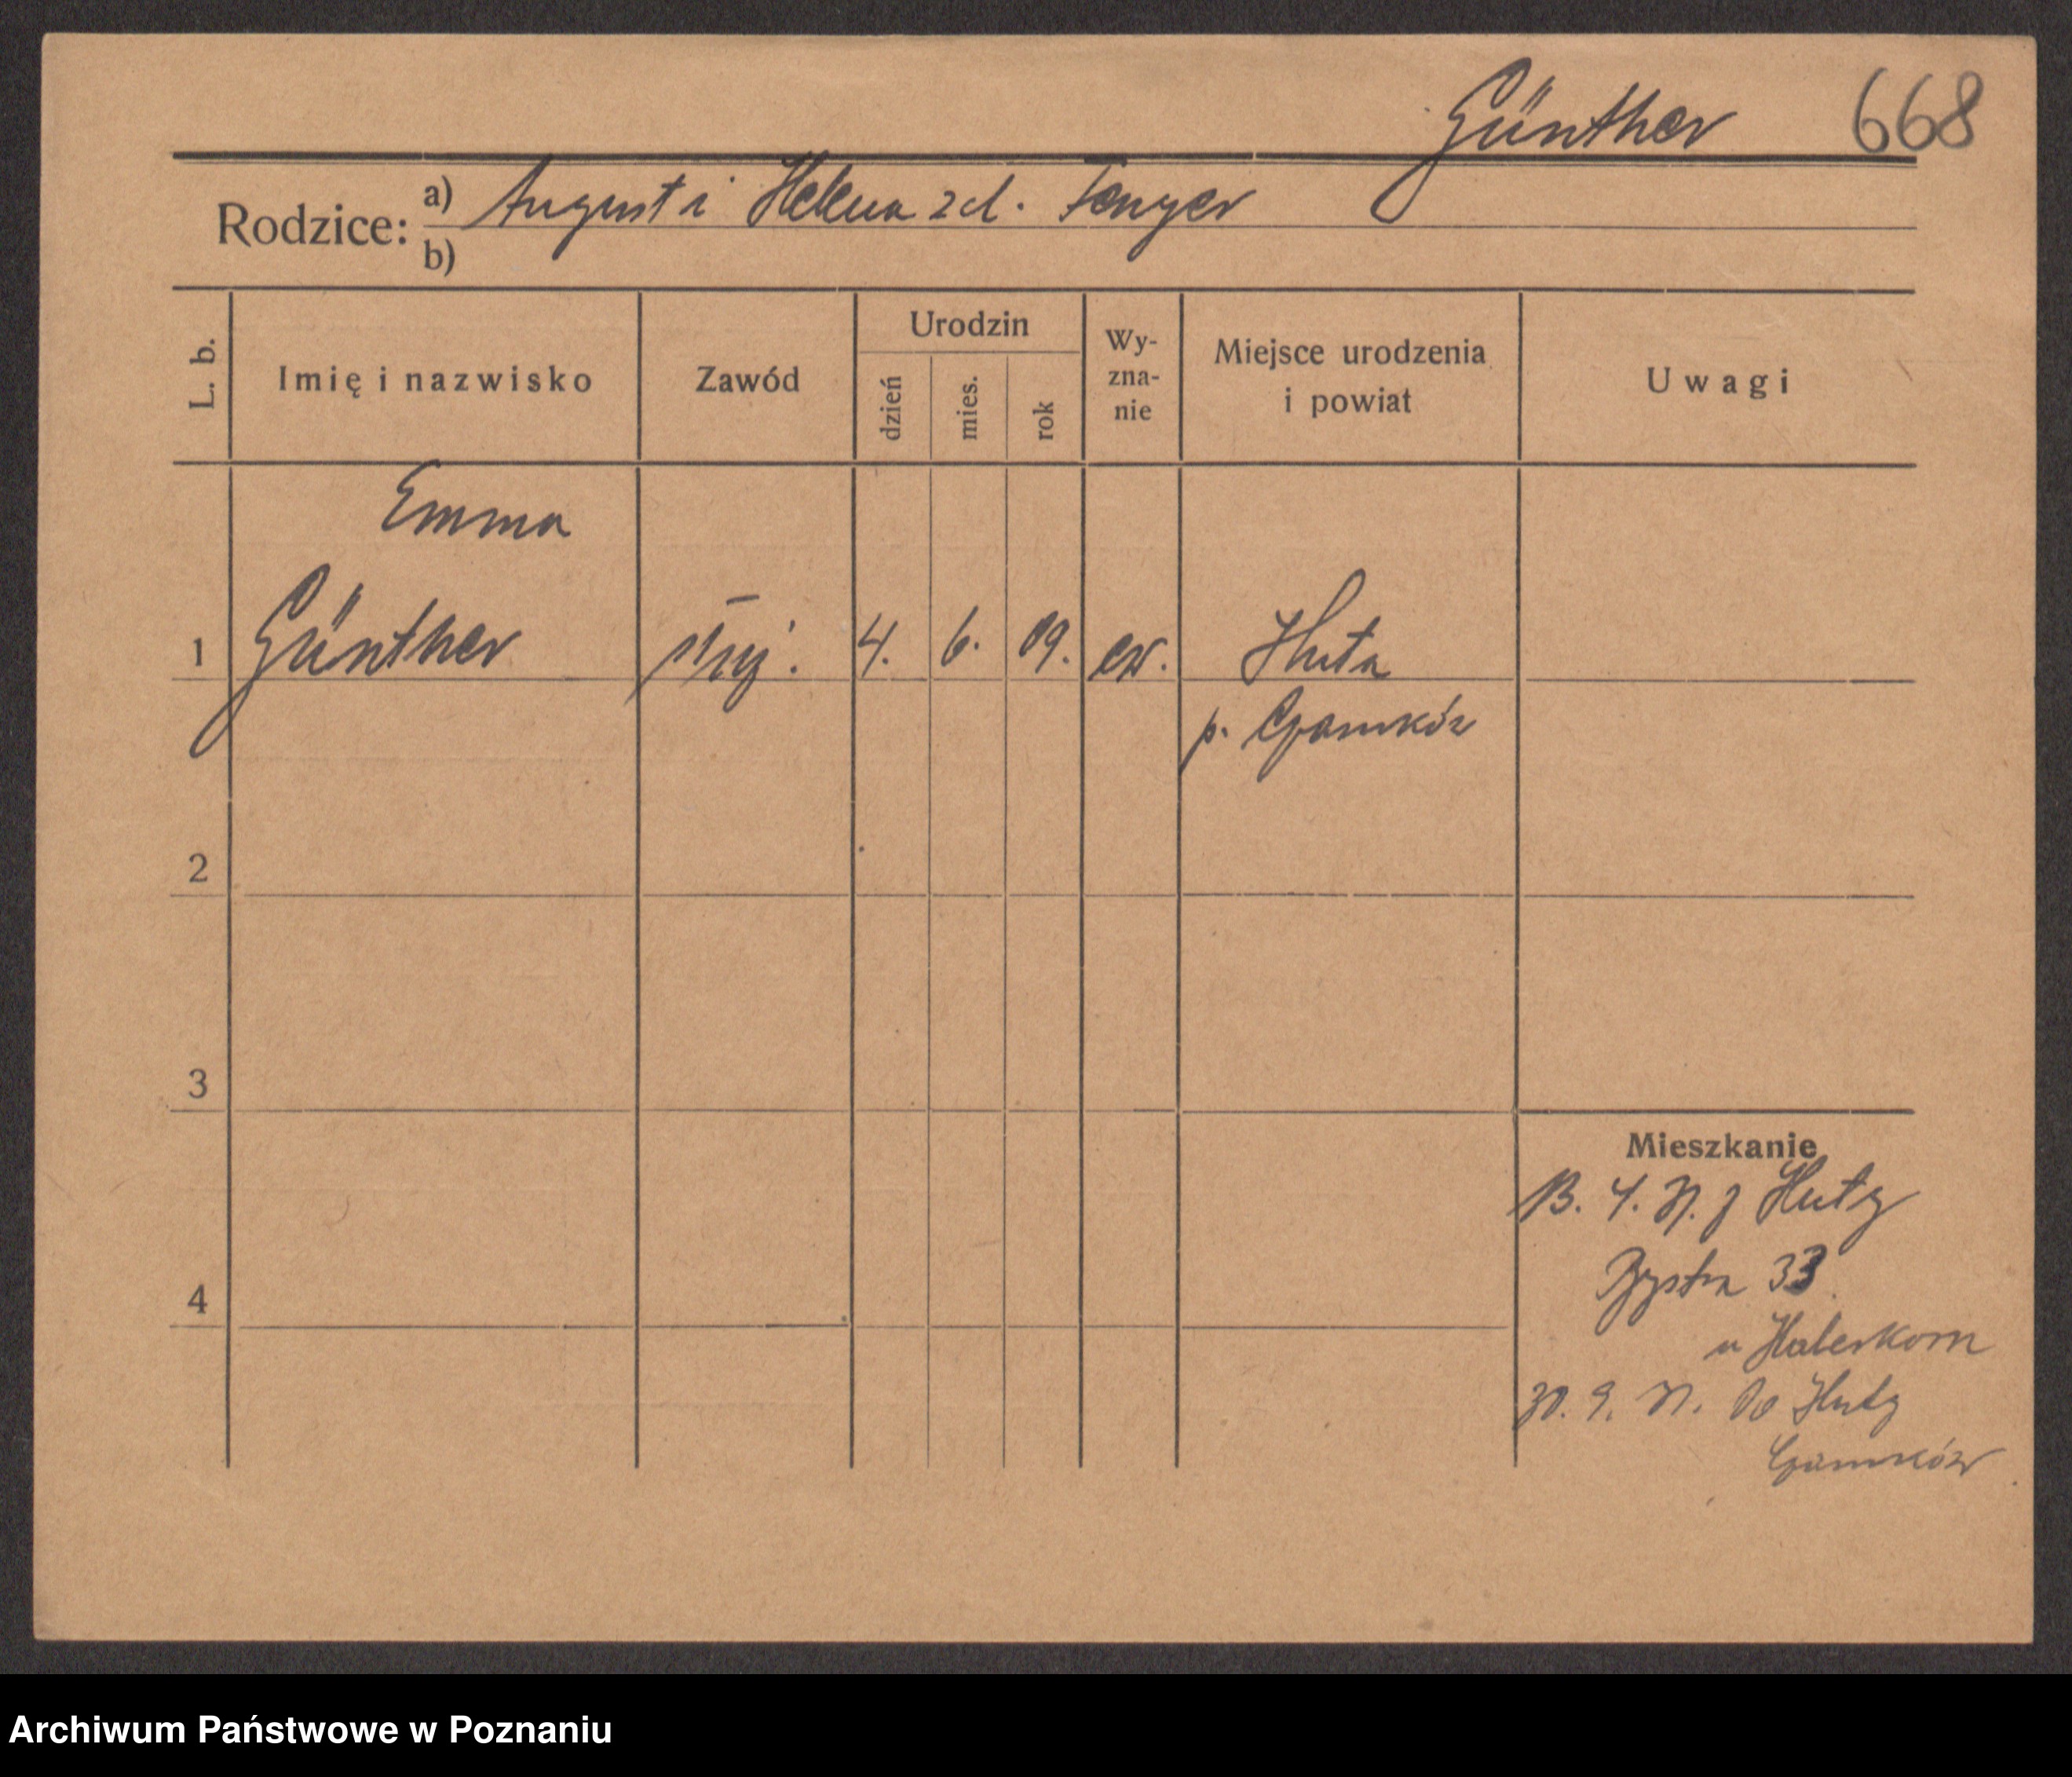 Günther 668
Rodzice: a) August i Helena z d.
b)
L. b.
Imię i nazwisko
Zawód
Urodzin
dzień
mies.
rok
Wy-
zna-
nie
Miejsce urodzenia
i powiat
Uwagi
Emma
1 Günther służ. 4. 6. 09. ew. Huta
p. Czarnków
2
3
4
Mieszkanie
Huty
Bystra 33
u Haberkorn
30. 9. do Huty
Czarnków
Archiwum Państwowe w Poznaniu